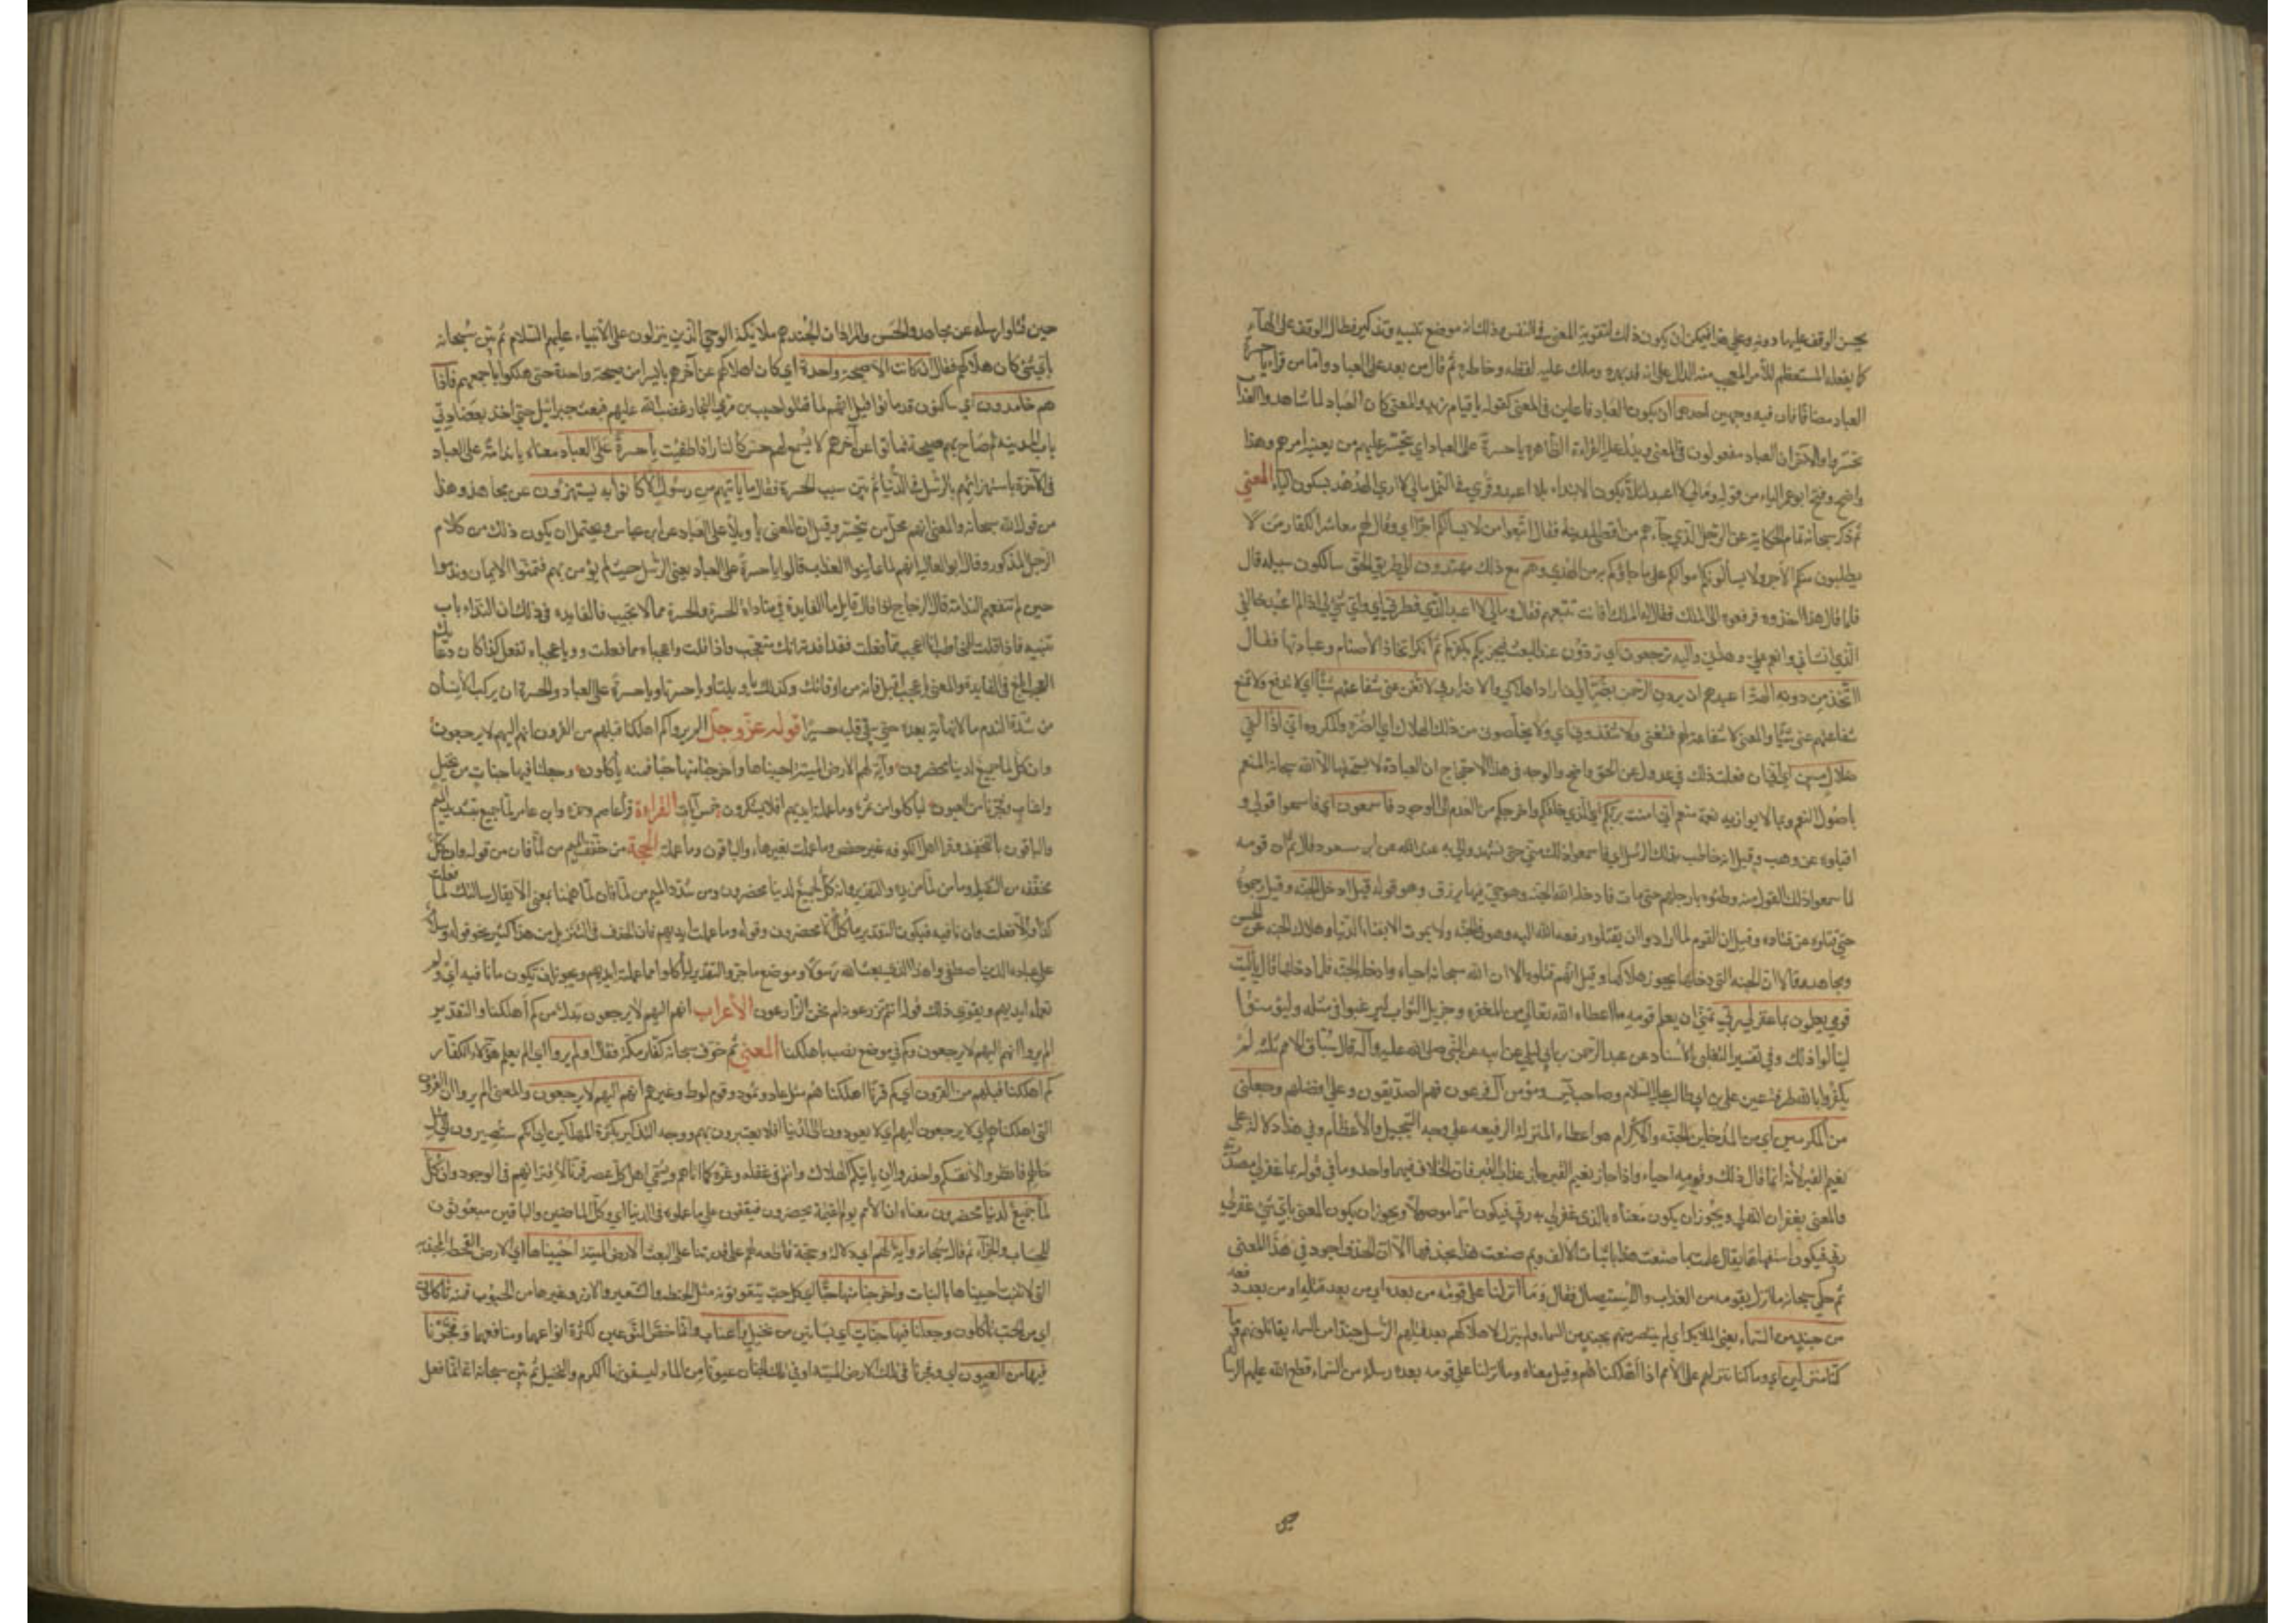 يحسن الوقف عليها دونه وعلى هذا فيمكن ان يكون ذلك لتقوية المعنى في النفس وذلك انه موضع تنبيه وتذكير فطال الوقف على الهاء
كما يفعله المستعظم للأمر المتعجب منه الدال على انه قد بهره وملك عليه لفظه وخاطره ثم قال من بعد على العباد واما من قرا يا حسرة
العباد مضافا فان فيه وجهين احدهما ان يكون العباد فاعلين في المعنى كقوله يا قيام زيد والمعنى كان العباد لما شاهدوا العذاب
تحسروا والآخر ان العباد مفعولون في المعنى ويدل عليه القراءة الظاهرة يا حسرة على العباد اي يتحسر عليهم من يعنيه امرهم وهذا
واضح وفتح ابو عمرو الياء من قوله ومالي لا اعبد لئلا يكون الابتداء بلا اعبد وقرئ في النمل مالي لا ارى الهدهد بسكون الياء المعنى
ثم ذكر سبحانه تمام الحكاية عن الرجل الذي جاءهم من اقصى المدينة فقال اتبعوا من لا يسألكم اجرا اي وقال لهم معاشر الكفار من لا
يطلبون منكم الاجر ولا يسألونكم اموالكم على ما جاؤكم به من الهدى وهم مع ذلك مهتدون الى طريق الحق سالكون سبيله قال
فلما قال هذا اخذوه فرفعوه الى الملك فقال له الملك افانت تتبعهم فقال ومالي لا اعبد الذي فطرني اي واي شئ لي اذا لم اعبد خالقي
الذي انشأني وانعم علي وهداني واليه ترجعون اي تردون عند البعث فيجزيكم بكفركم ثم انكر اتخاذ الأصنام وعبادتها فقال
أاتخذ من دونه آلهة اعبدهم ان يردن الرحمن بضر اي ان اراد اهلاكي والاضرار بي لا تغن عني شفاعتهم شيئا اي لا تدفع ولا تمنع
شفاعتهم عني شيئا والمعنى لا شفاعة لهم فتغني ولا ينقذون اي ولا يخلصوني من ذلك الهلاك اي الضرر والمكروه اني اذا لفي
ضلال مبين اي اني ان فعلت ذلك في عدول عن الحق واضح والوجه في هذا الاحتجاج ان العبادة لا يستحقها الا الله سبحانه المنعم
باصول النعم وبما لا يوازيه نعمة منعم اني امنت بربكم اي الذي خلقكم واخرجكم من العدم الى الوجود فاسمعون اي فاسمعوا قولي و
اقبلوه عن وهب وقيل انه خاطب بذلك الرسل اي فاسمعوا ذلك مني حتى تشهدوا لي به عند الله عن ابن مسعود قال ثم ان قومه
لما سمعوا ذلك القول منه وطئوه بارجلهم حتى مات فادخله الله الجنة وهو حي فيها يرزق وهو قوله قيل ادخل الجنة وقيل رجموه
حتى قتلوه عن قتادة وقيل ان القوم لما ارادوا ان يقتلوه رفعه الله اليه وهو في الجنة ولا يموت الا بفناء الدنيا وهلاك الجنة عن الحسن
ومجاهد وقالا ان الجنة التي دخلها يجوز هلاكها وقيل انهم قتلوه الا ان الله سبحانه احياه وادخله الجنة فلما دخلها قال يا ليت
قومي يعلمون بما غفر لي ربي تمنى ان يعلم قومه ما اعطاه الله تعالى من المغفرة وجزيل الثواب ليرغبوا في مثله وليؤمنوا
لينالوا ذلك وفي تفسير الثعلبي بالأسناد عن عبد الرحمن بن ابي ليلى عن ابيه عن النبي صلى الله عليه وآله قال سباق الامم ثلثة لم
يكفروا بالله طرفة عين علي بن ابي طالب عليه السلام وصاحب يس ومؤمن آل فرعون فهم الصديقون وعلي افضلهم وجعلني
من المكرمين اي من المدخلين الجنة والاكرام هو اعطاء المنزلة الرفيعة على وجه التبجيل والأعظام وفي هذا دلالة على
نعيم القبر لأنه انما قال ذلك وقومه احياء واذا جاز نعيم القبر جاز عذاب القبر فان الخلاف فيهما واحد وما في قوله بما غفر لي مصدرية
والمعنى بمغفرة الله لي ويجوز ان يكون معناه بالذي غفر لي به ربي فيكون اسما موصولا ويجوز ان يكون المعنى باي شئ غفر لي
ربي فيكون استفهاما يقال علمت بما صنعت هذا باثبات الالف وبم صنعت هذا بحذفها الا ان الحذف اجود في هذا المعنى
ثم حكى سبحانه ما انزل بقومه من العذاب والاستيصال فقال وما انزلنا على قومه من بعده اي من بعد قتله او من بعد رفعه
من جند من السماء يعني الملايكة اي لم ينتصر منهم بجند من السماء ولم ينزل لاهلاكهم بعد قتلهم الرسل جندا من السماء يقاتلونهم وما
كنا منزلين اي وما كنا ننزلهم على الأمم اذا اهلكناهم وقيل معناه وما انزلنا على قومه بعده رسالة من السماء قطع الله عليهم الرسالة
حين قتلوا رسله عن مجاهد والحسن والمراد ان الجند هم ملايكة الوحي الذين ينزلون على الأنبياء عليهم السلام ثم بين سبحانه
باي شئ كان هلاكهم فقال ان كانت الا صيحة واحدة اي كان اهلاكهم عن آخرهم بايسر امر صيحة واحدة حتى هلكوا باجمعهم فاذا
هم خامدون اي ساكنون قد ماتوا قيل انهم لما قتلوا حبيب بن مري النجار غضب الله عليهم فبعث جبرائيل حتى اخذ بعضادتي
باب المدينة ثم صاح بهم صيحة فماتوا عن آخرهم لا يسمع لهم حس كالنار اذا طفئت يا حسرة على العباد معناه يا ندامة على العباد
في الآخرة باستهزائهم بالرسل في الدنيا ثم بين سبب الحسرة فقال ما يأتيهم من رسول الا كانوا به يستهزؤن عن مجاهد وهذا
من قول الله سبحانه والمعنى انهم حلوا محل من يتحسر وقيل ان المعنى يا ويلا على العباد عن ابن عباس ويحتمل ان يكون ذلك من كلام
الرجل المذكور وقال ابو العالية انهم لما عاينوا العذاب قالوا يا حسرة على العباد يعني الرسل حيث لم يؤمن بهم فتمنوا الايمان وندموا
حين لم تنفعهم الندامة قال الزجاج اذا قال قايل ما الفايدة في مناداة الحسرة والحسرة مما لا يجيب فالفايدة في ذلك ان النداء باب
تنبيه فاذا قلت للمخاطب انا اعجب مما فعلت فقد افدته انك متعجب واذا قلت واعجباه مما فعلت ويا عجباه تفعل كذا كان دعاؤك
العجب ابلغ في الفايدة والمعنى يا عجب اقبل فانه من اوقاتك وكذلك يا ويلتا وا حسرتا ويا حسرة على العباد والحسرة ان يركب الانسان
من شدة الندم ما لا نهاية بعده حتى يبقى قلبه حسيرا قوله عز وجل الم يروا كم اهلكنا قبلهم من القرون انهم اليهم لا يرجعون
وان كل لما جميع لدينا محضرون وآية لهم الارض الميتة احييناها واخرجنا منها حبا فمنه يأكلون وجعلنا فيها جنات من نخيل
واعناب وفجرنا فيها من العيون ليأكلوا من ثمره وما عملته ايديهم افلا يشكرون خمس آيات القراءة قرأ عاصم وحمزة وابن عامر لما جميع بتشديد الميم
والباقون بالتخفيف وقرا اهل الكوفة غير حفص وما عملت بغير هاء والباقون وما عملته الحجة من خفف الميم من لما فان من قوله وان كل
مخففة من الثقيلة وما من لما مزيدة والتقدير وانه كل لجميع لدينا محضرون ومن شدد الميم من لما فان لما ههنا بمعنى الا يقال سألتك لما فعلت
كذا والا فعلت وان نافية فيكون التقدير ما كل الا محضرون وقوله وما عملت ايديهم فان الحذف في التنزيل من هذا كثير نحو قوله وسلام
على عباده الذين اصطفى واهذا الذي بعث الله رسولا وموضع ما جر والتقدير ليأكلوا مما عملته ايديهم ويجوز ان تكون ما نافية اي ولم
تعمله ايديهم ويقوي ذلك قوله أانتم تزرعونه ام نحن الزارعون الأعراب انهم اليهم لا يرجعون بدل من كم اهلكنا والتقدير
الم يروا انهم اليهم لا يرجعون وكم في موضع نصب باهلكنا المعنى ثم خوف سبحانه كفار مكة فقال اولم يروا اي الم يعلم هؤلاء الكفار
كم اهلكنا قبلهم من القرون اي كم قرنا اهلكناهم مثل عاد وثمود وقوم لوط وغيرهم انهم اليهم لا يرجعون والمعنى الم يروا ان القرون
التي اهلكناها لا يرجعون اليهم اي لا يعودون الى الدنيا افلا يعتبرون بهم ووجه التذكير بكثرة المهلكين اي انكم ستصيرون الى مثل
حالهم فانظروا لانفسكم واحذروا ان يأتيكم الهلاك وانتم في غفلة وغرة كما اتاهم ويسمى اهل كل عصر قرنا لاقترانهم في الوجود وان كل
لما جميع لدينا محضرون معناه ان الأمم يوم القيمة يحضرون فيقفون على ما عملوه في الدنيا اي وكل الماضين والباقين مبعوثون
للحساب والجزاء ثم قال سبحانه وآية لهم اي دلالة وحجة قاطعة لهم على قدرتنا على البعث الارض الميتة احييناها اي الارض القحطة المجدبة
التي لا تنبت احييناها بالنبات واخرجنا منها حبا اي كل حب يتقوتونه مثل الحنطة والشعير والارز وغيرها من الحبوب فمنه يأكلون
اي من الحب يأكلون وجعلنا فيها جنات اي بساتين من نخيل واعناب وانما خص النوعين لكثرة انواعهما ومنافعهما وفجرنا
فيها من العيون اي وفجرنا في تلك الارض الميتة او في تلك الجنات عيونا من الماء ليسقون بها الكرم والنخيل ثم بين سبحانه انه انما فعل